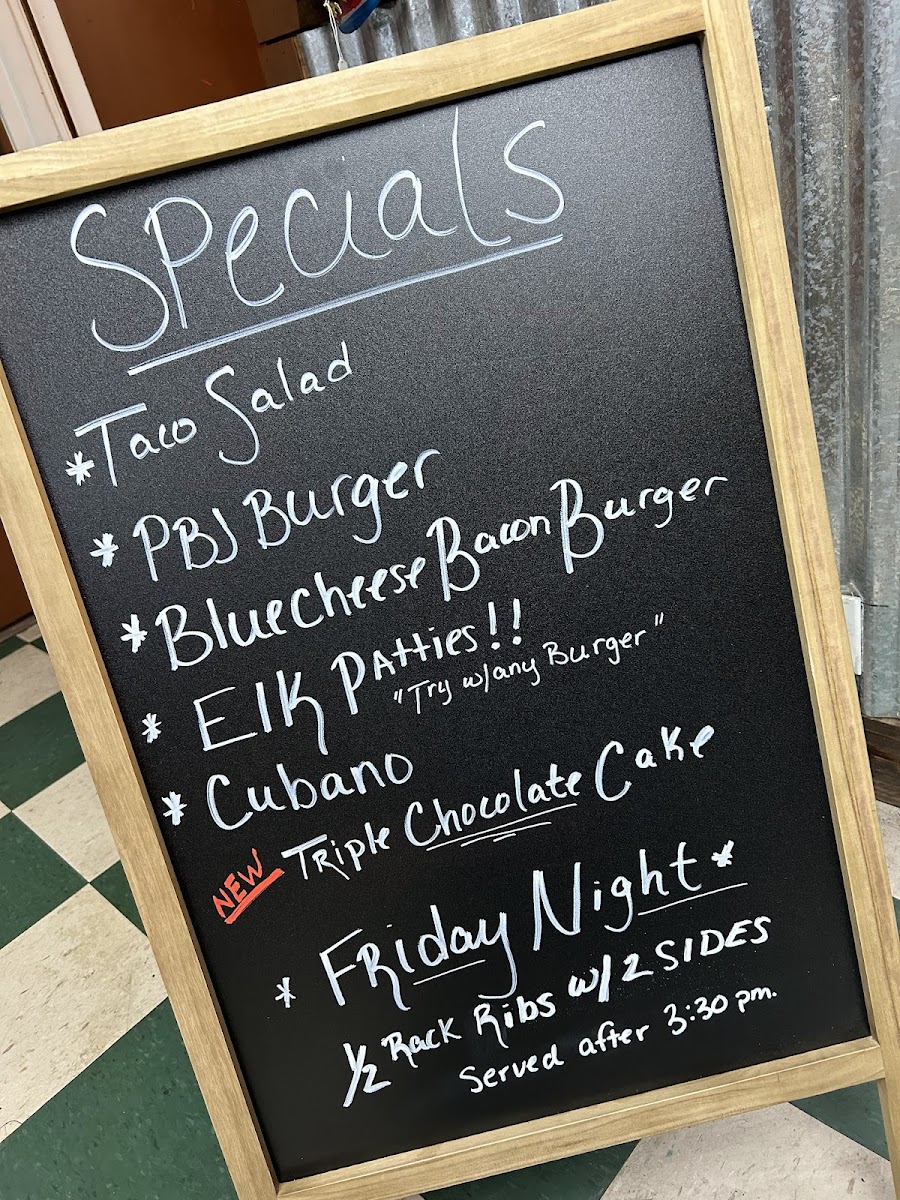 Specials
*Taco Salad
* PBJ Burger
* Bluecheese Bacon Burger
* Elk Patties!!
"Try w/any Burger"
* Cubano
NEW Triple Chocolate Cake
* Friday Night *
1/2 Rack Ribs w/ 2 SIDES
Served after 3:30 pm.